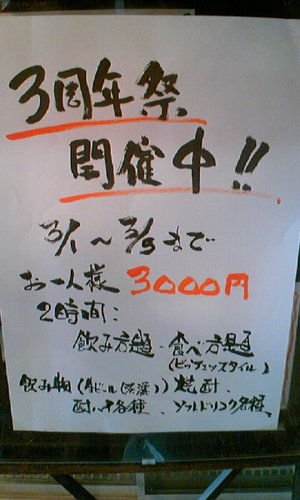 3周年祭
開催中!!
3/1 〜 3/5 まで
お一人様 3000円
2時間:
飲み方題、食べ方題
(ビュッフェスタイル)
飲み物 (生ビール ()) 焼酎、
酎ハイ各種、ソフトドリンク各種、